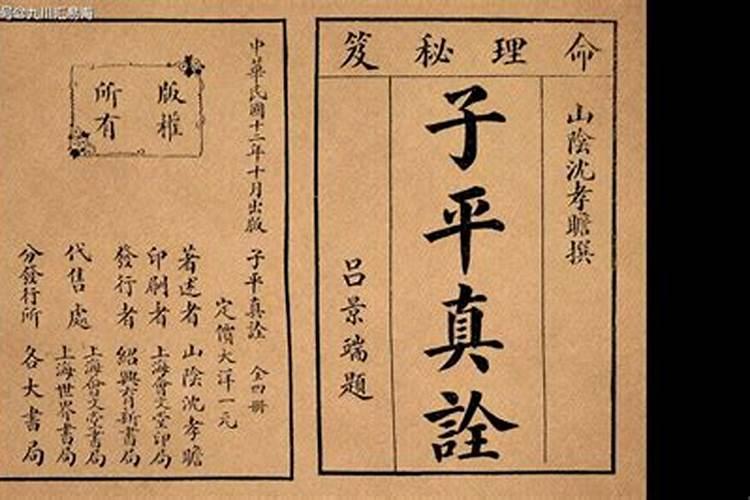 号@九川汇易海
命理秘笈
山陰沈孝瞻撰
子平真詮
呂景端題
中華民國十二年十月出版
版權
所有
子平真詮 全四冊
定價大洋一元
著述者 山陰沈孝瞻
印刷者 上海會文堂印局
發行者 紹興育新書局
代售處 上海會文堂書局
上海世界書局
分發行所 各大書局